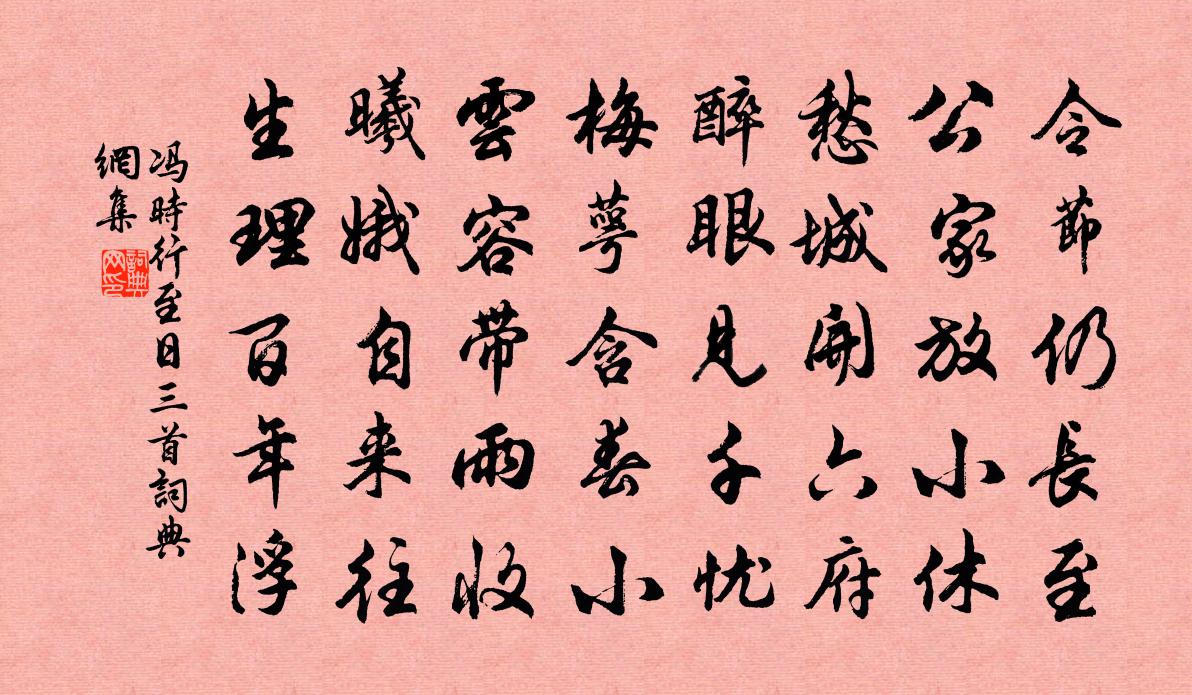 令節仍長至
公家放小休
愁城開六府
醉眼見千忧
梅萼含春小
雲容帶雨收
曦娥自来往
生理百年浮
冯時行至日三首詞典
網集
詞典
网印